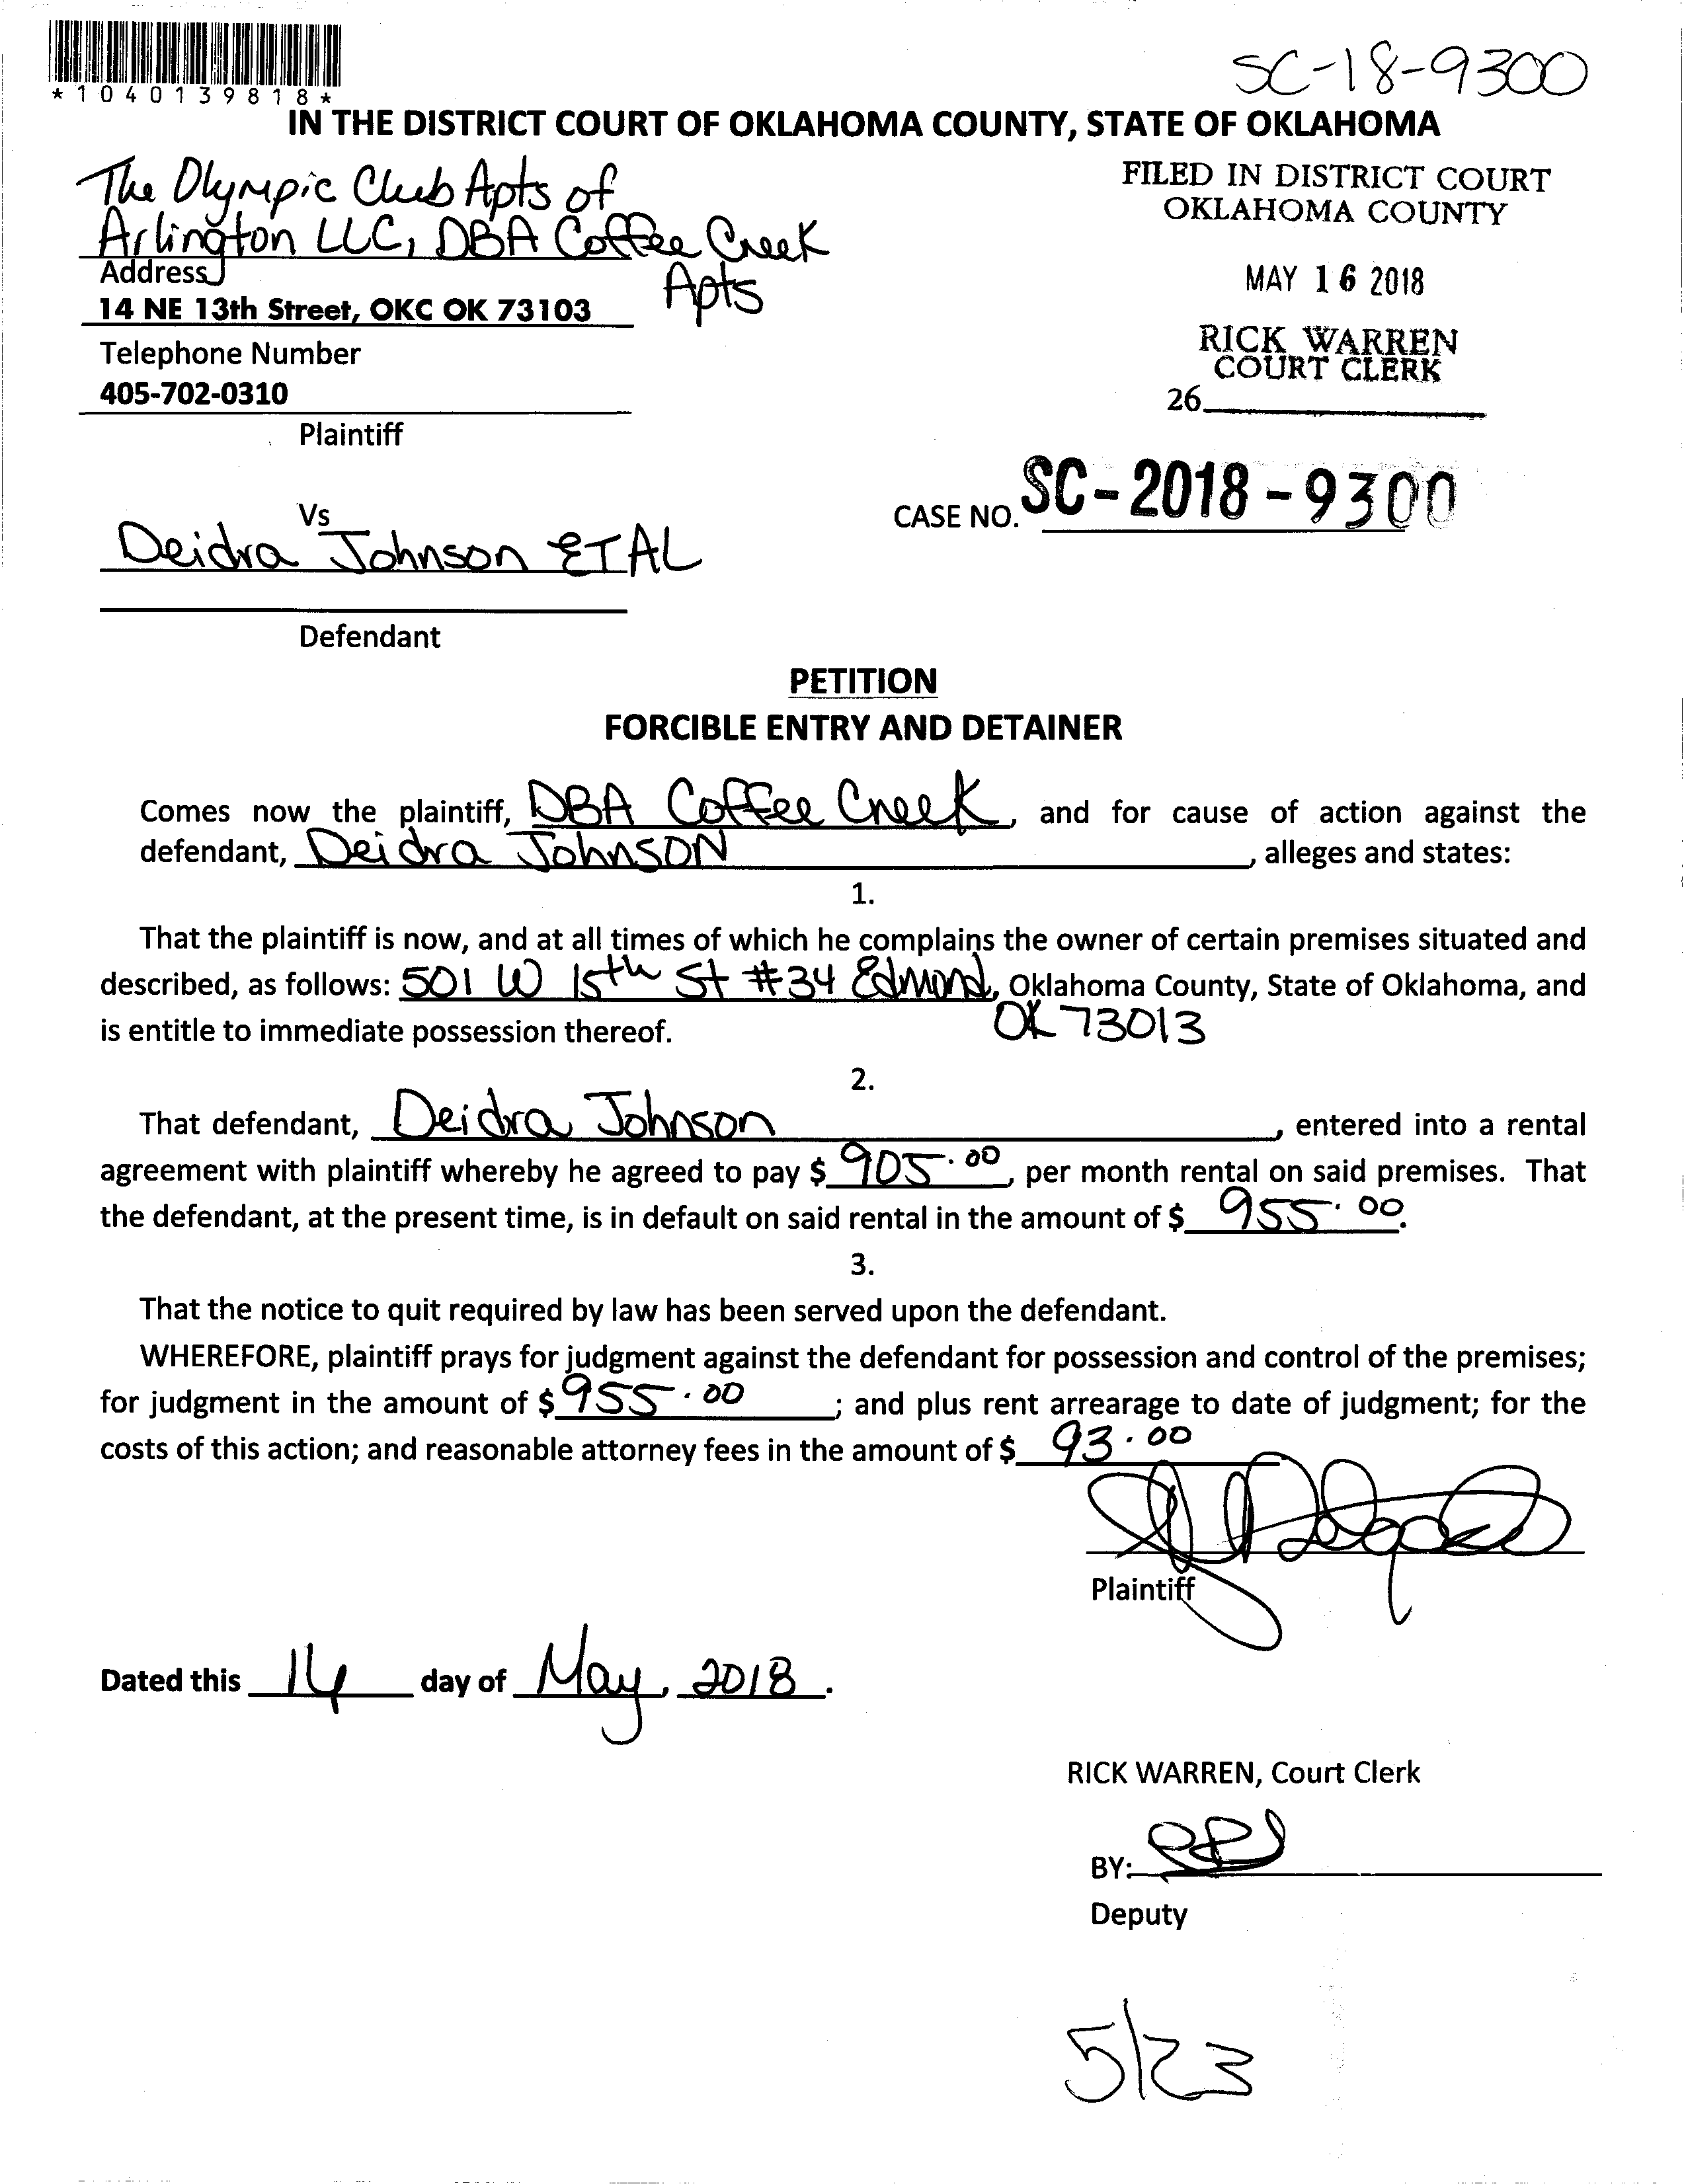 *1040139818*
SC-18-9300
IN THE DISTRICT COURT OF OKLAHOMA COUNTY, STATE OF OKLAHOMA
The Olympic Club Apts of
Arlington LLC, DBA Coffee Creek
Apts
Address
14 NE 13th Street, OKC OK 73103
Telephone Number
405-702-0310
Plaintiff
FILED IN DISTRICT COURT
OKLAHOMA COUNTY
MAY 16 2018
RICK WARREN
COURT CLERK
26
CASE NO. SC-2018-9300
Vs
Deidra Johnson ETAL
Defendant
PETITION
FORCIBLE ENTRY AND DETAINER
Comes now the plaintiff, DBA Coffee Creek, and for cause of action against the
defendant, Deidra Johnson, alleges and states:
1.
That the plaintiff is now, and at all times of which he complains the owner of certain premises situated and
described, as follows: 501 W 15th St #34 Edmond, Oklahoma County, State of Oklahoma, and
OK 73013
is entitle to immediate possession thereof.
2.
That defendant, Deidra Johnson, entered into a rental
agreement with plaintiff whereby he agreed to pay $ 905.00, per month rental on said premises. That
the defendant, at the present time, is in default on said rental in the amount of $ 955.00.
3.
That the notice to quit required by law has been served upon the defendant.
WHEREFORE, plaintiff prays for judgment against the defendant for possession and control of the premises;
for judgment in the amount of $ 955.00; and plus rent arrearage to date of judgment; for the
costs of this action; and reasonable attorney fees in the amount of $ 93.00
Plaintiff
Dated this 14 day of May, 2018.
RICK WARREN, Court Clerk
BY:
Deputy
5/23